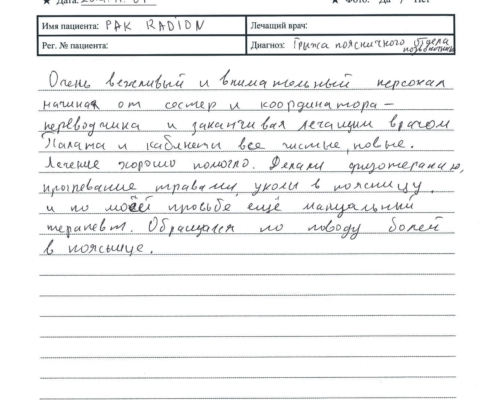 ★ Дата:
★ Фото: Да / Нет
Имя пациента: PAK RADION
Лечащий врач:
Рег. № пациента:
Диагноз: Грыжа поясничного отдела позвоночника
Очень вежливый и внимательный персонал
начиная от сестер и координатора –
переводчика и заканчивая лечащим врачом
Палата и кабинеты все чистые, новые.
Лечение хорошо помогло. Делали физотерапию,
прогревание травами, уколы в поясницу.
и по моей просьбе ещё мануальный
терапевт. Обращался по поводу болей
в пояснице.